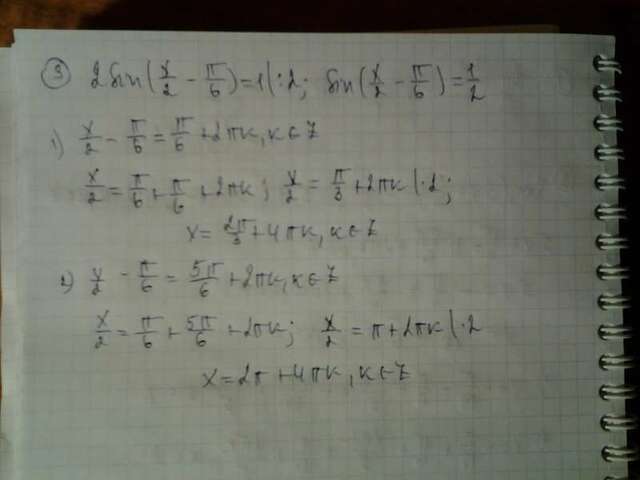 ③ 2sin(x/2 - π/6)=1|:2; sin(x/2 - π/6)=1/2
1) x/2 - π/6 = π/6 + 2πk, k∈Z
x/2 = π/6 + π/6 + 2πk; x/2 = π/3 + 2πk|·2;
x = 2π/3 + 4πk, k∈Z
2) x/2 - π/6 = 5π/6 + 2πk, k∈Z
x/2 = π/6 + 5π/6 + 2πk; x/2 = π + 2πk|·2
x = 2π + 4πk, k∈Z